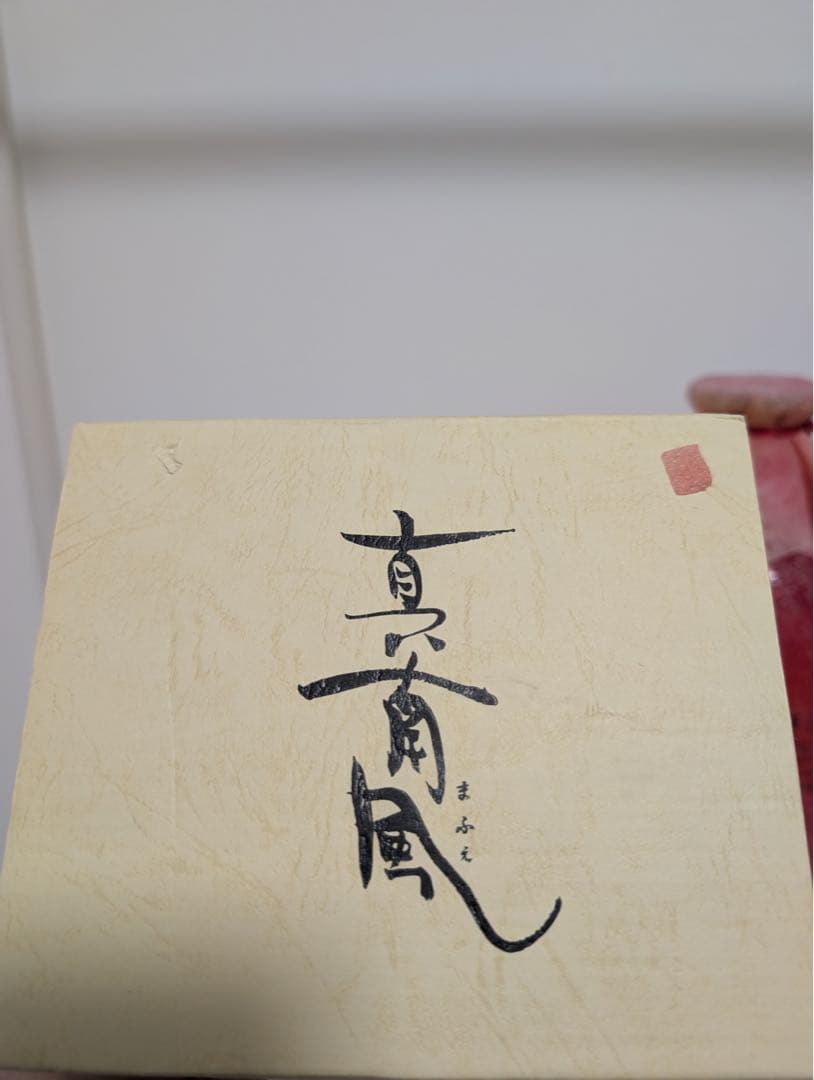 真南風
まふえ